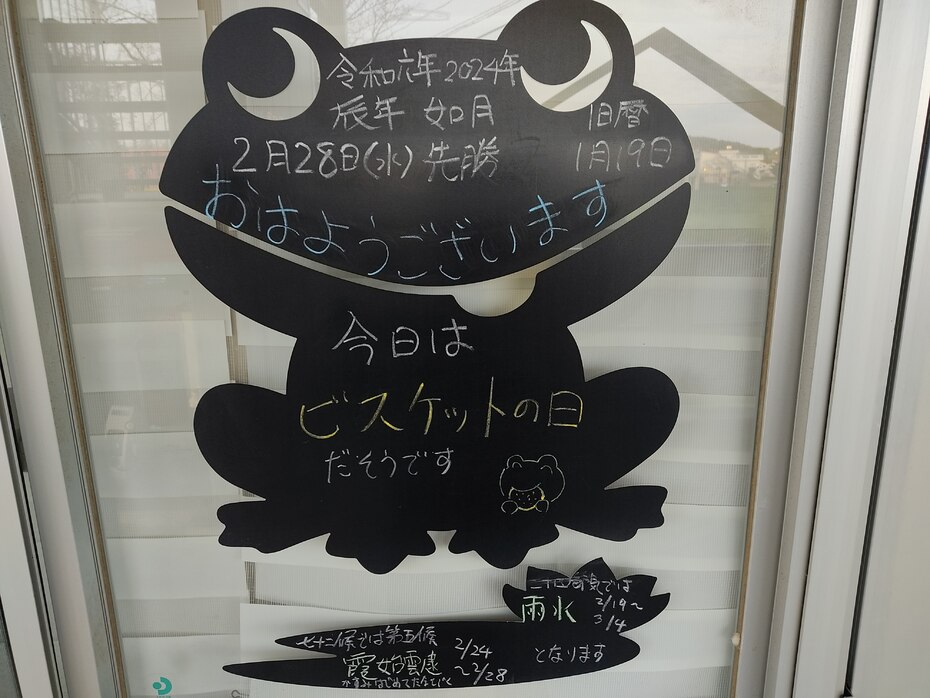 令和六年2024年
辰年 如月 旧暦
2月28日(水) 先勝 1月19日
おはようございます
今日は
ビスケットの日
だそうです
二十四節気では
雨水 2/19~
3/4
となります
七十二候では第五候 2/24
霞始 ~2/28
かすみはじめてたなびく